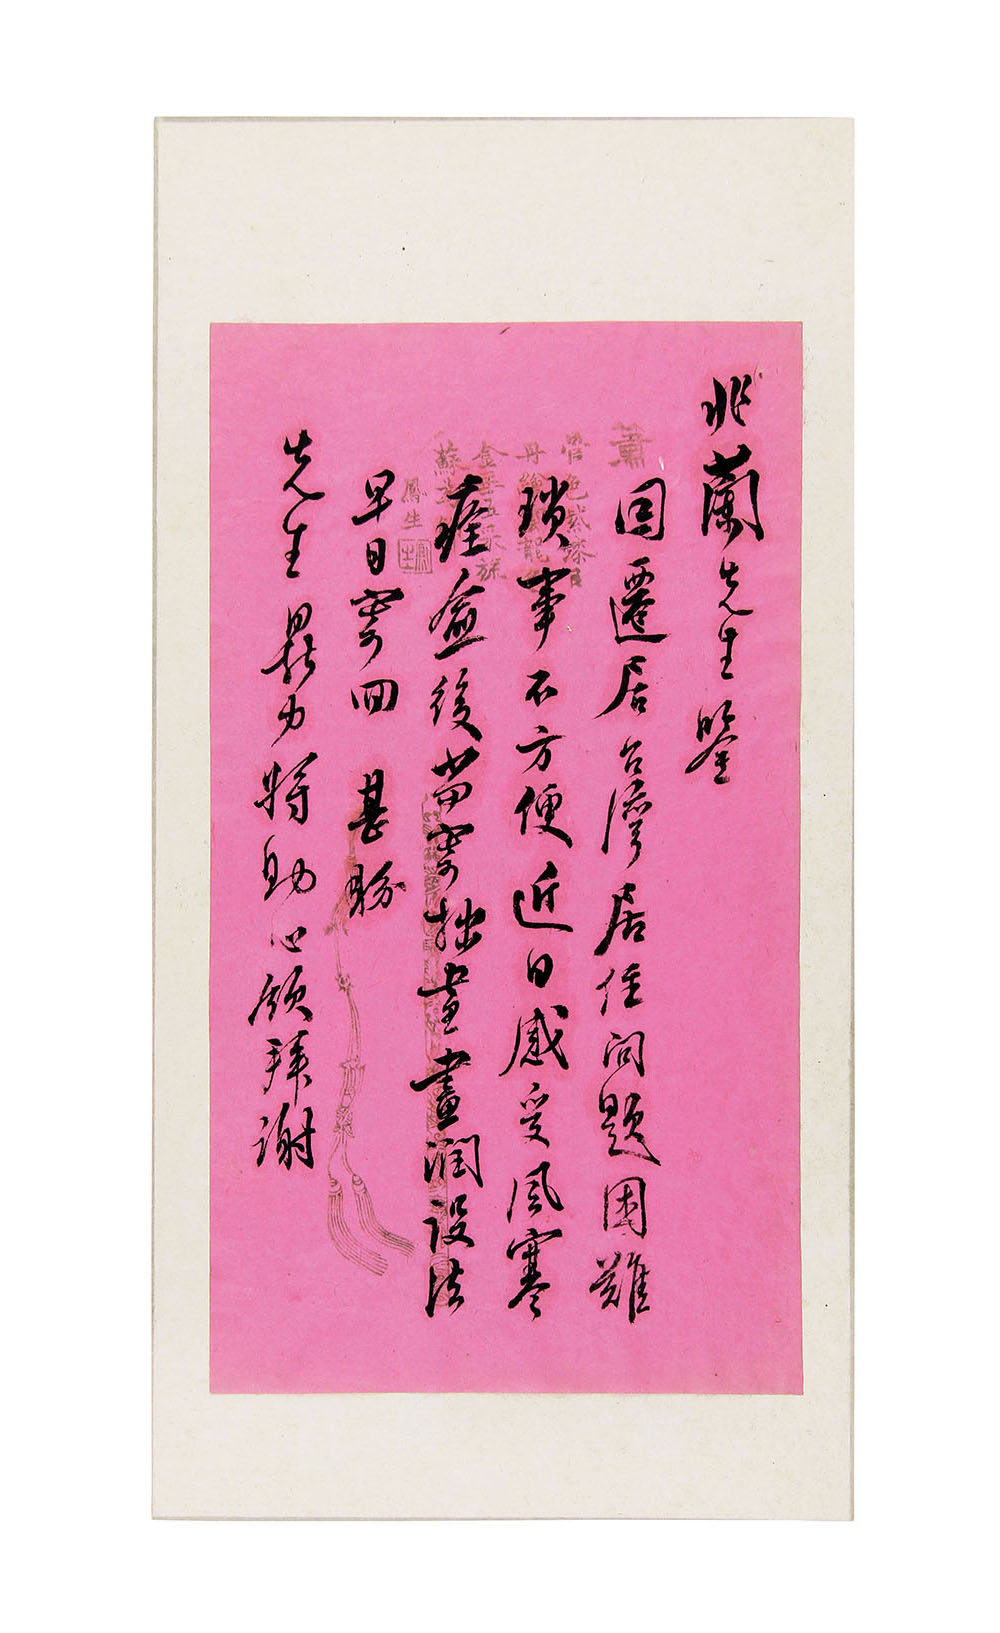 兆蘭先生鑒
因遷居台灣居住問題困難
瑣事不方便近日感受風寒
痊愈後當寄拙畫畫潤設法
早日寄回 甚盼
先生鼎力特助心頗拜謝
簫
管色
丹
金
蘇
鳳生